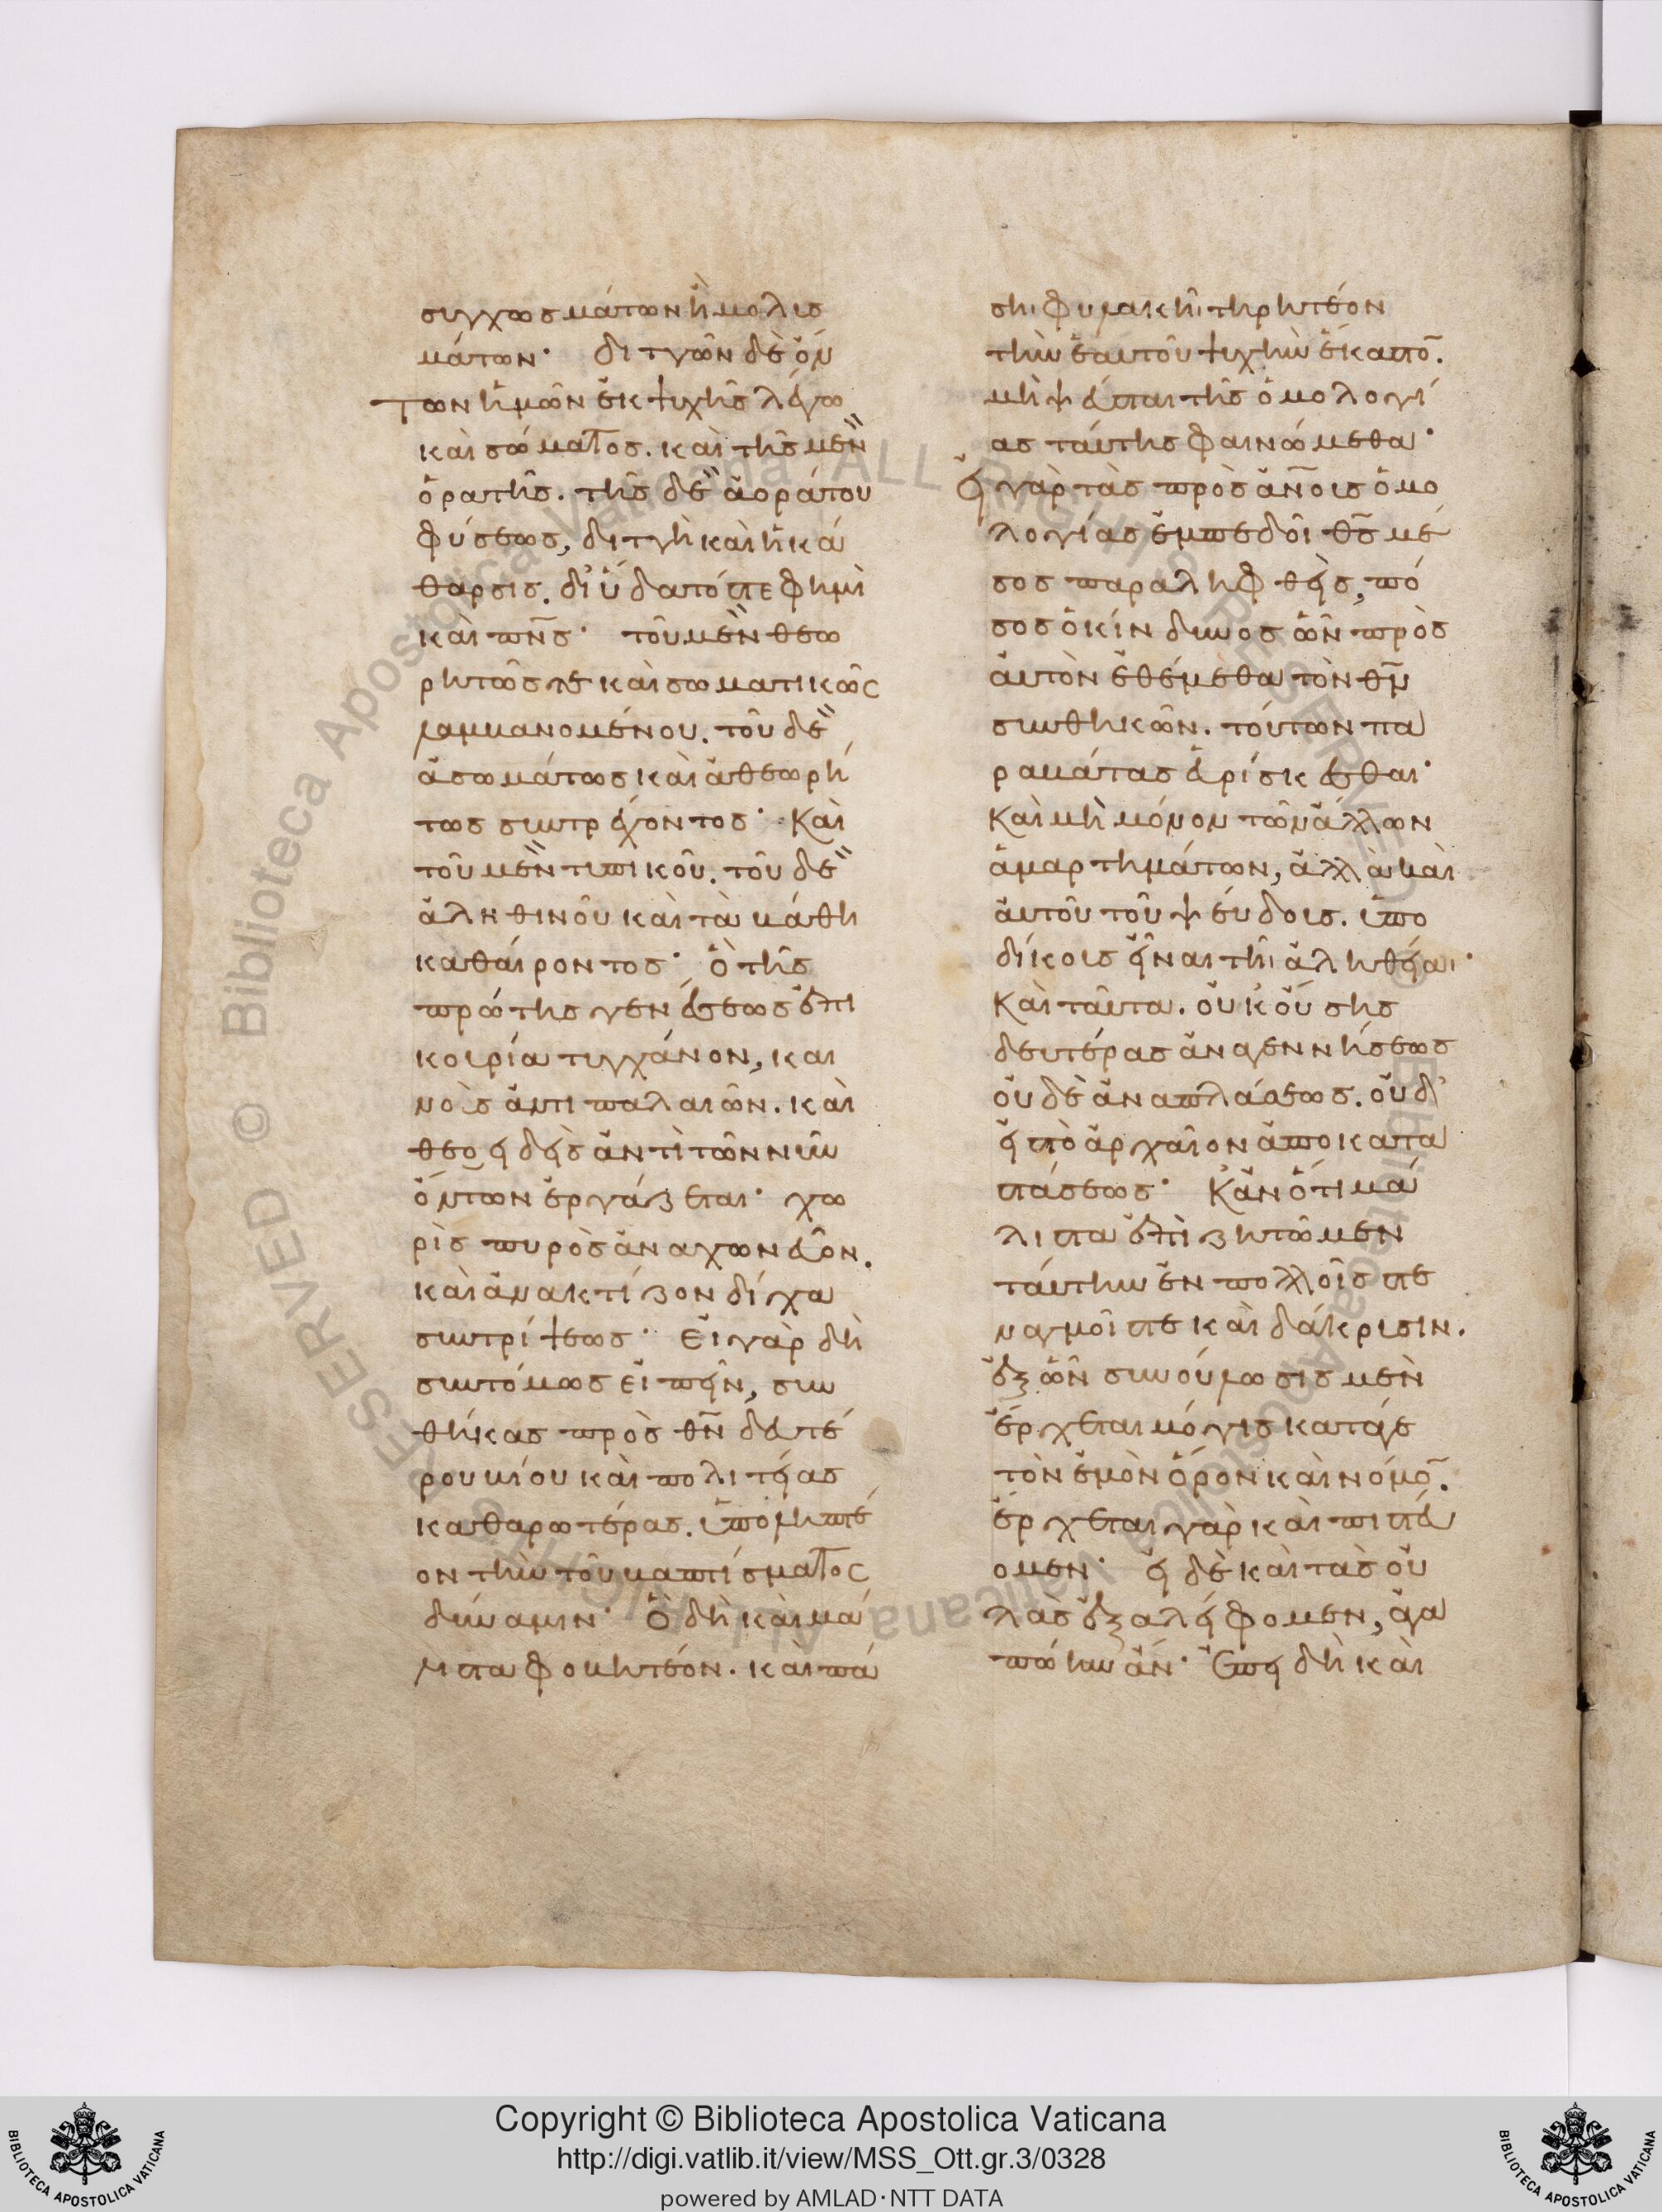 συγχωσμάτων ἢ μολυσ
μάτων· διττῶν δὲ ὄν
των ἡμῶν ἐκ ψυχῆς λέγω
καὶ σώματος. καὶ τῆς μὲν
ὁρατῆς. τῆς δὲ ἀοράτου
φύσεως, διττὴ καὶ ἡ κά
θαρσις. δι' ὕδατός τέ φημι
καὶ πνς· τοῦ μὲν θεω
ρητῶς τε καὶ σωματικῶς
λαμβανομένου. τοῦ δὲ
ἀσωμάτως καὶ ἀθεωρή
τως συντρέχοντος· Καὶ
τοῦ μὲν τυπικοῦ. τοῦ δὲ
ἀληθινοῦ καὶ τὰ βάθη
καθαίροντος· Ὃ τῆς
πρώτης γενέσεως ἐπι
κουρία τυγχάνον, και
νοὺς ἀντὶ παλαιῶν. καὶ
θεοειδεῖς ἀντὶ τῶν νῦν
ὄντων ἐργάζεται· χω
ρὶς πυρὸς ἀναχωνεῦον.
καὶ ἀνακτίζον δίχα
συντρίψεως· Εἰ γὰρ δεῖ
συντόμως εἰπεῖν, συν
θήκας πρὸς θν δευτέ
ρου βίου καὶ πολιτείας
καθαρωτέρας. ὑποληπτέ
ον τὴν τοῦ βαπτίσματος
δύναμιν· Ὃ δὴ καὶ μά
λιστα φοβητέον. καὶ πά
σηι φυλακῆι τηρητέον
τὴν ἑαυτοῦ ψυχὴν ἕκαστο̅.
μὴ ψεῦσται τῆς ὁμολογί
ας ταύτης φαινώμεθα·
Εἰ γὰρ τὰς πρὸς ἀνοις ὁμο
λογίας ἐμπεδοῖ θς μέ
σος παραληφθεὶς, πό
σος ὁ κίνδυνος ὧν πρὸς
αὐτὸν ἐθέμεθα τὸν θν
συνθηκῶν. τούτων πα
ραβάτας εὑρίσκεσθαι·
Καὶ μὴ μόνον τῶν ἄλλων
ἁμαρτημάτων, ἀλλὰ καὶ
αὐτοῦ τοῦ ψεύδους. ὑπο
δίκους εἶναι τῆι ἀληθείαι·
Καὶ ταῦτα. οὐκ οὔσης
δευτέρας ἀναγεννήσεως
οὐδὲ ἀναπλάσεως. οὐδ'
εἰς τὸ ἀρχαῖον ἀποκατα
στάσεως· Κἂν ὅτι μά
λιστα ἐπιζητῶμεν
ταύτην ἐν πολλοῖς στε
ναγμοῖς τε καὶ δάκρυσιν.
ἐξ ὧν συνούλωσις μὲν
ἔρχεται μόγις κατά γε
τὸν ἐμὸν ὅρον καὶ νόμο̅.
ἔρχεται γὰρ καὶ πιστεύ
ομεν· εἰ δὲ καὶ τὰς οὐ
λὰς ἐξαλείφομεν, ἀγα
πώιην ἄν· Ἐπεὶ δὴ καὶ
Copyright © Biblioteca Apostolica Vaticana
http://digi.vatlib.it/view/MSS_Ott.gr.3/0328
powered by AMLAD·NTT DATA